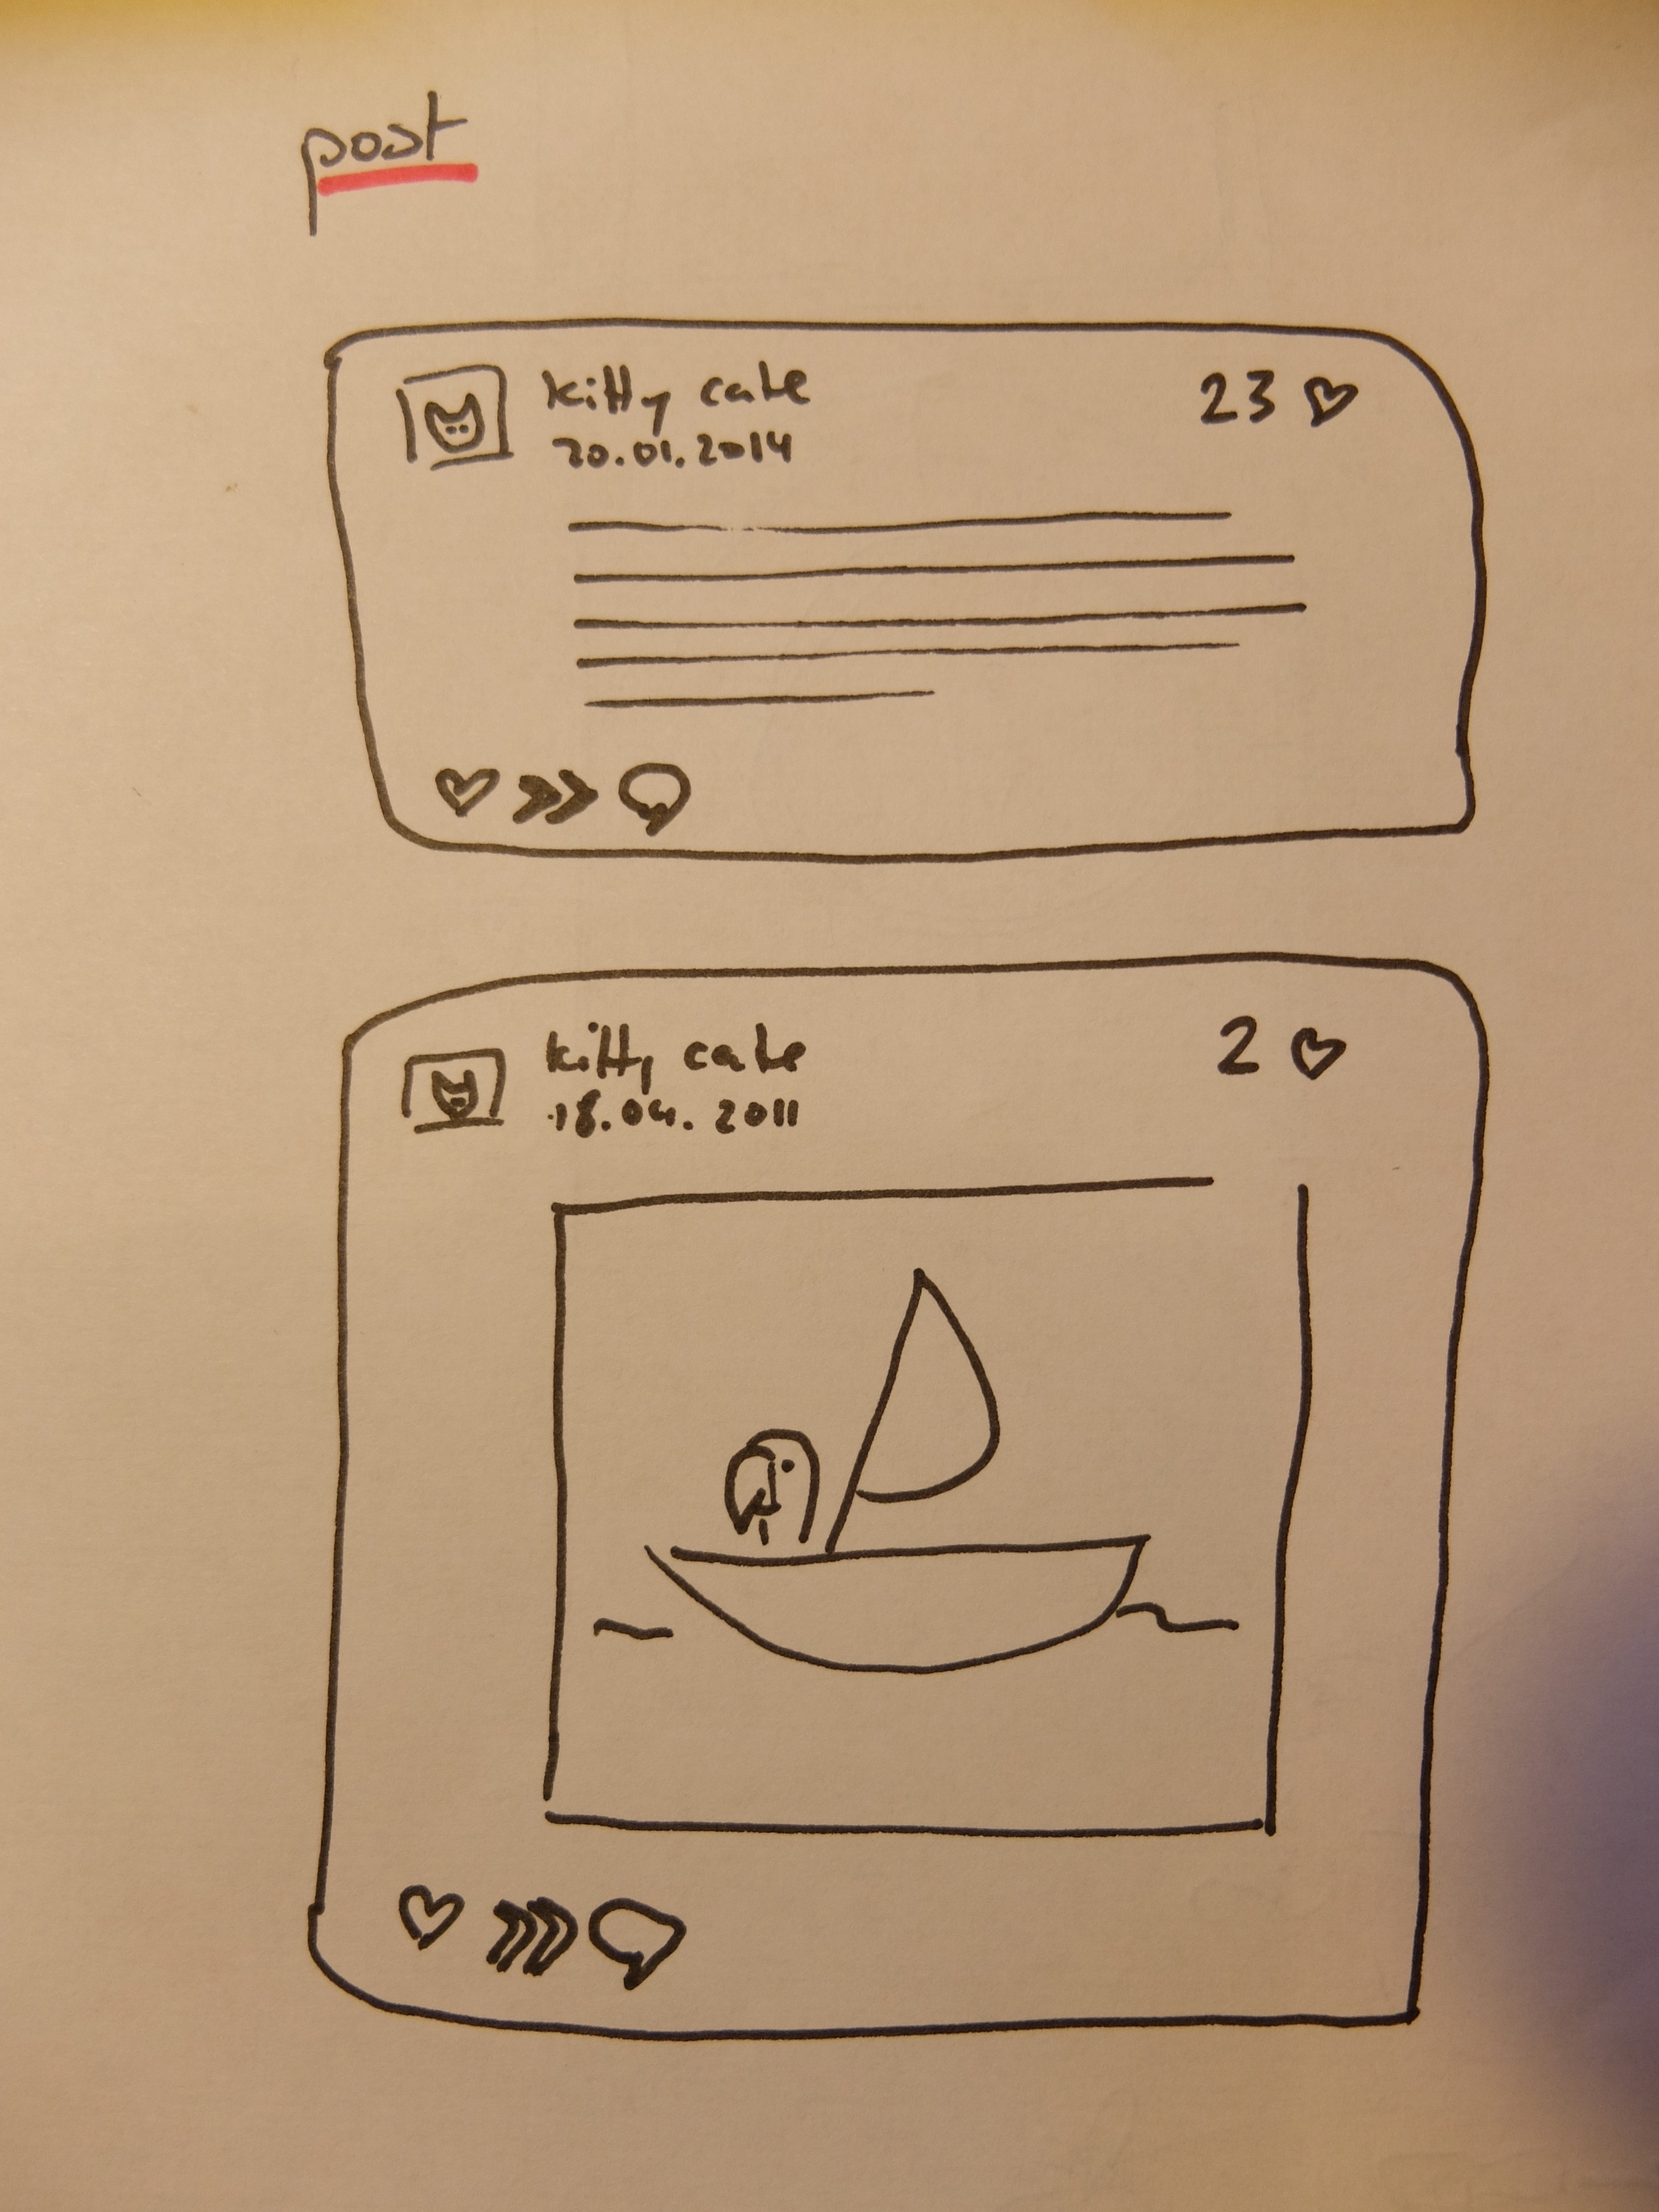 post
kitty cate
20.01.2014
23
kitty cate
18.04.2011
2